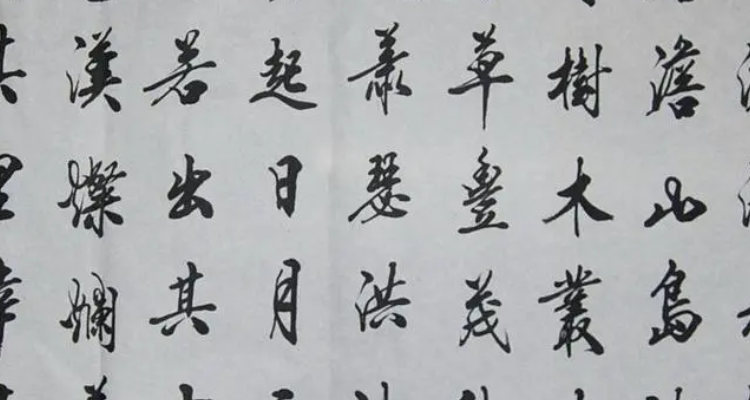 澹山島
樹木叢
草豐茂
蕭瑟洪
起日月
若出其
漢燦爛